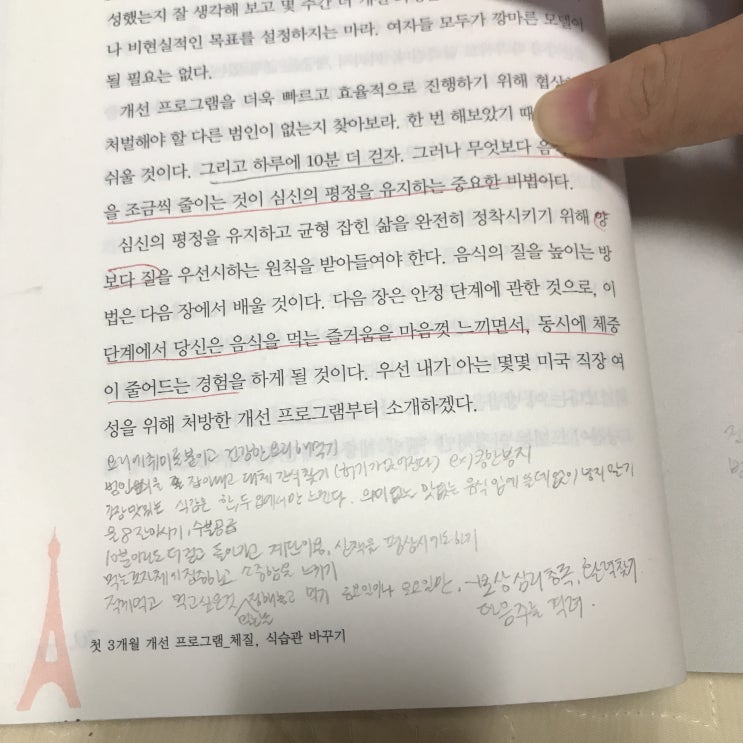 성했는지 잘 생각해 보고 몇 주간 더 개선
나 비현실적인 목표를 설정하지는 마라. 여자들 모두가 깡마른 모델이
될 필요는 없다.
개선 프로그램을 더욱 빠르고 효율적으로 진행하기 위해 협상
처벌해야 할 다른 범인이 없는지 찾아보라. 한 번 해보았기 때
쉬울 것이다. 그리고 하루에 10분 더 걷자. 그러나 무엇보다 음
을 조금씩 줄이는 것이 심신의 평정을 유지하는 중요한 비법이다.
심신의 평정을 유지하고 균형 잡힌 삶을 완전히 정착시키기 위해 양
보다 질을 우선시하는 원칙을 받아들여야 한다. 음식의 질을 높이는 방
법은 다음 장에서 배울 것이다. 다음 장은 안정 단계에 관한 것으로, 이
단계에서 당신은 음식을 먹는 즐거움을 마음껏 느끼면서, 동시에 체중
이 줄어드는 경험을 하게 될 것이다. 우선 내가 아는 몇몇 미국 직장 여
성을 위해 처방한 개선 프로그램부터 소개하겠다.
요리에 취미를 붙이고 건강한 요리 해먹기
잡아내고 대체 간식 찾기 (허기가 없어진다) ex) 콩한봉지
가장 맛있는 식감은 한, 두 입에서만 느낀다. 의미없는 맛없는 음식 입에 쓸데없이 넣지 말기
물 8잔 마시기, 수분공급
10분이라도 더 걷고 돌아가고 계단이용, 산책을 평상시에도 하기
먹는 것 자체에 집중하고 소중함을 느끼기
적게 먹고 먹고싶은것 정해놓고 먹기 토요일이나 일요일만, 보상심리 충족, 활력찾기
다음주를 격려.
첫 3개월 개선 프로그램_체질, 식습관 바꾸기